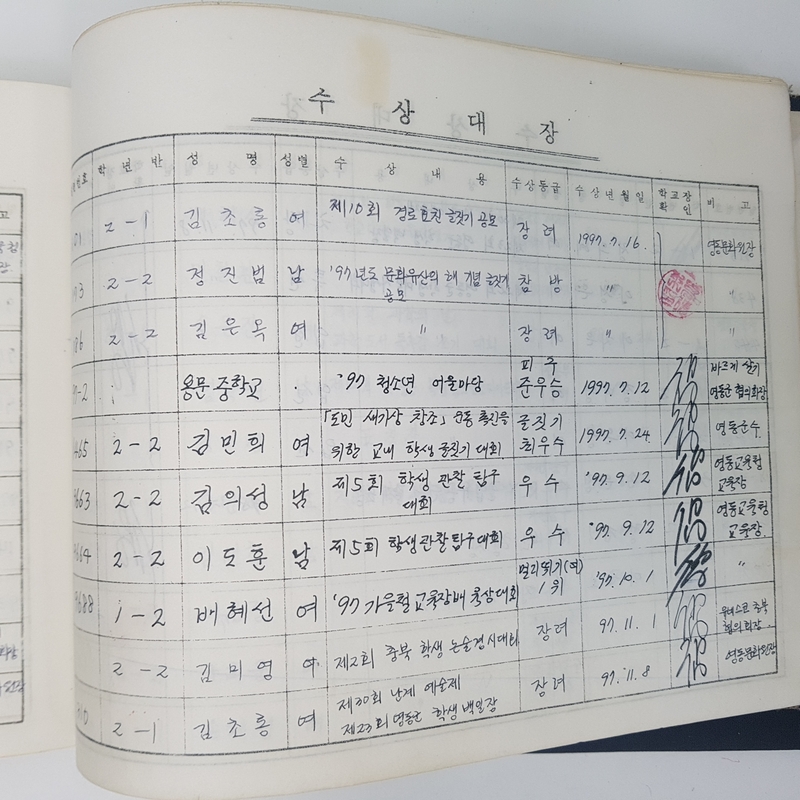 수 상 대 장
학 년 반 성 명 성별 수 상 내 용 수상등급 수상년월일 학교장 확인 비 고
2-1 김초롱 여 제10회 경로효친 글짓기 공모 장려 1997.7.16. 영동문화원장
2-2 정진범 남 '97년도 문화유산의 해 기념 글짓기
공모 참방 〃 〃
2-2 김은옥 여 〃 장려 〃 〃
용문중학교 . '97 청소년 어울마당 피구
준우승 1997.7.12 바르게 살기
영동군 협의회장
465 2-2 김민희 여 「도민 새가상 창조」 운동 촉진을
위한 교내 학생 글짓기 대회 글짓기
최우수 1997.7.24. 영동군수.
663 2-2 김의성 남 제5회 학생 관찰 탐구
대회 우수 '97.9.12 영동교육청
교육장
664 2-2 이도훈 남 제5회 학생관찰탐구대회 우수 '97.9.12 영동교육청
교육장.
688 1-2 배혜선 여 '97 가을철 교육장배 육상대회 멀리뛰기(여)
1위 '97.10.1 〃
2-2 김미영 여 제2회 충북 학생 논술경시대회 장려 97.11.1 유네스코 충북
협의회장.
2-1 김초롱 여 제30회 난계 예술제
제23회 영동군 학생 백일장 장려 97.11.8 영동문화원장